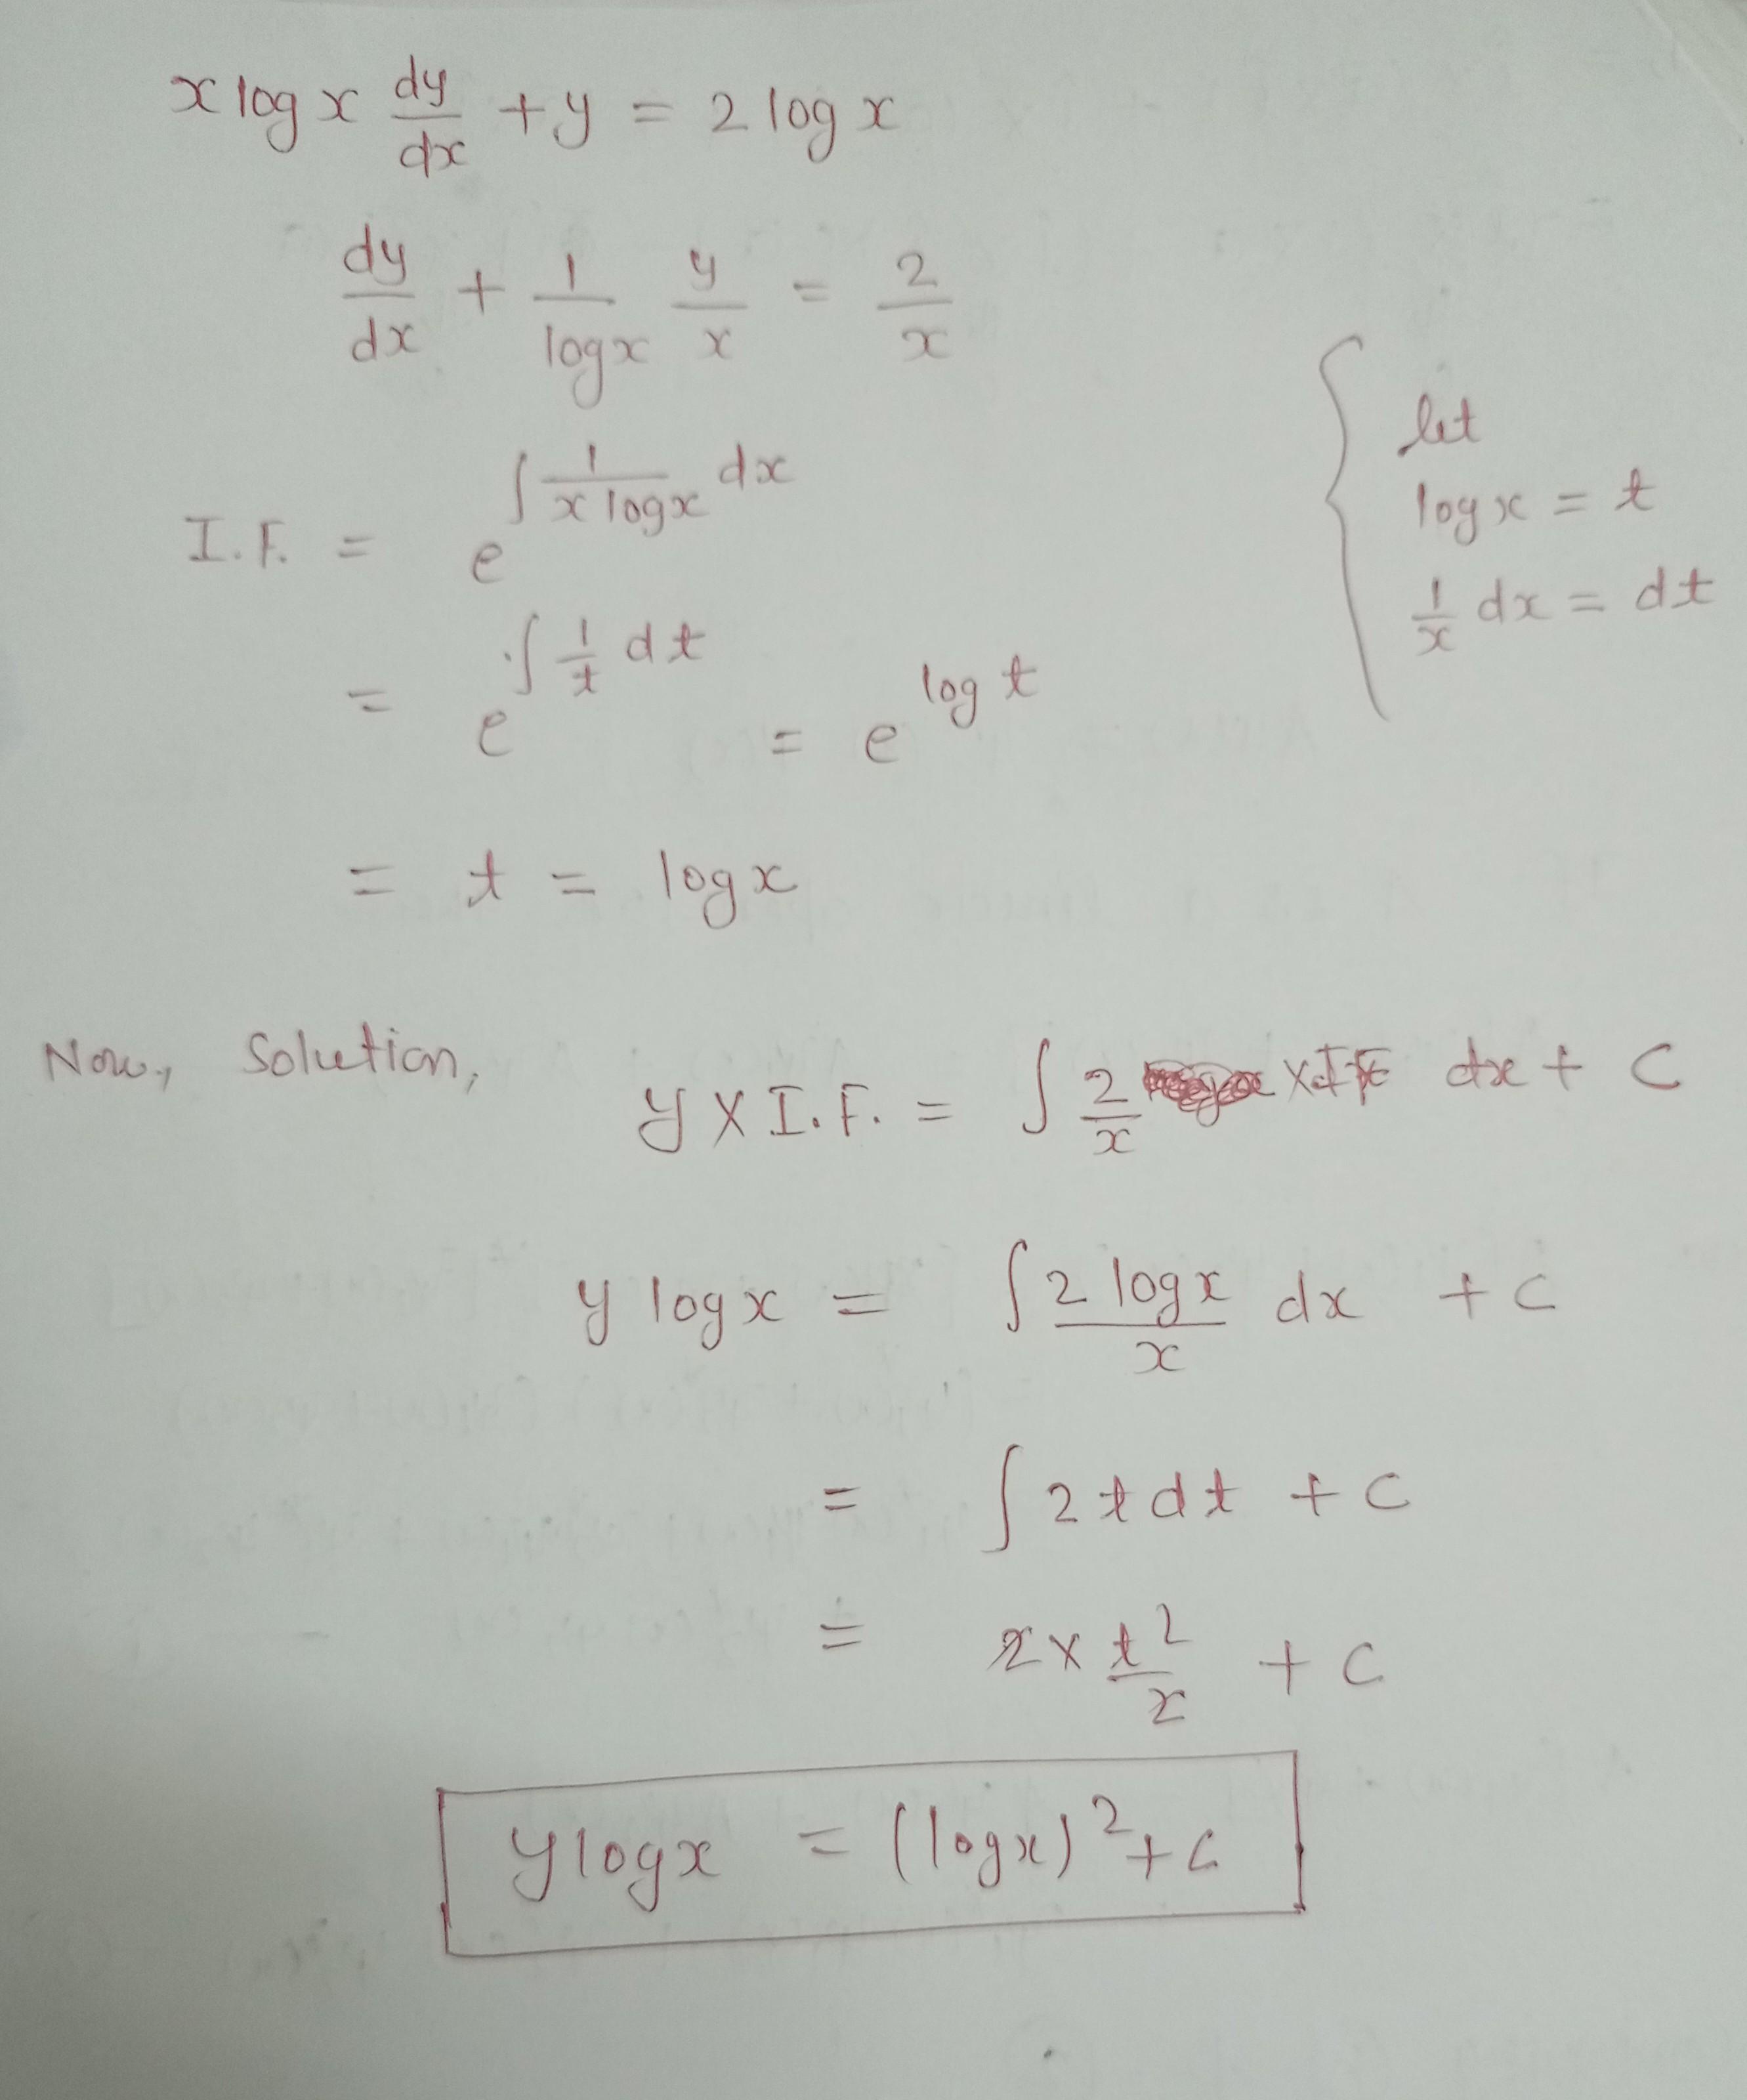 x log x dy/dx + y = 2 log x
dy/dx + 1/logx y/x = 2/x
I.F. = e^∫ 1/(x logx) dx
{ let
logx = t
1/x dx = dt
= e^∫ 1/t dt = e^log t
= t = logx
Now, Solution,
y X I.F. = ∫ 2/x XIF dx + C
y logx = ∫ (2 logx)/x dx + C
= ∫ 2t dt + C
= 2 x t²/2 + C
y logx = (logx)² + C